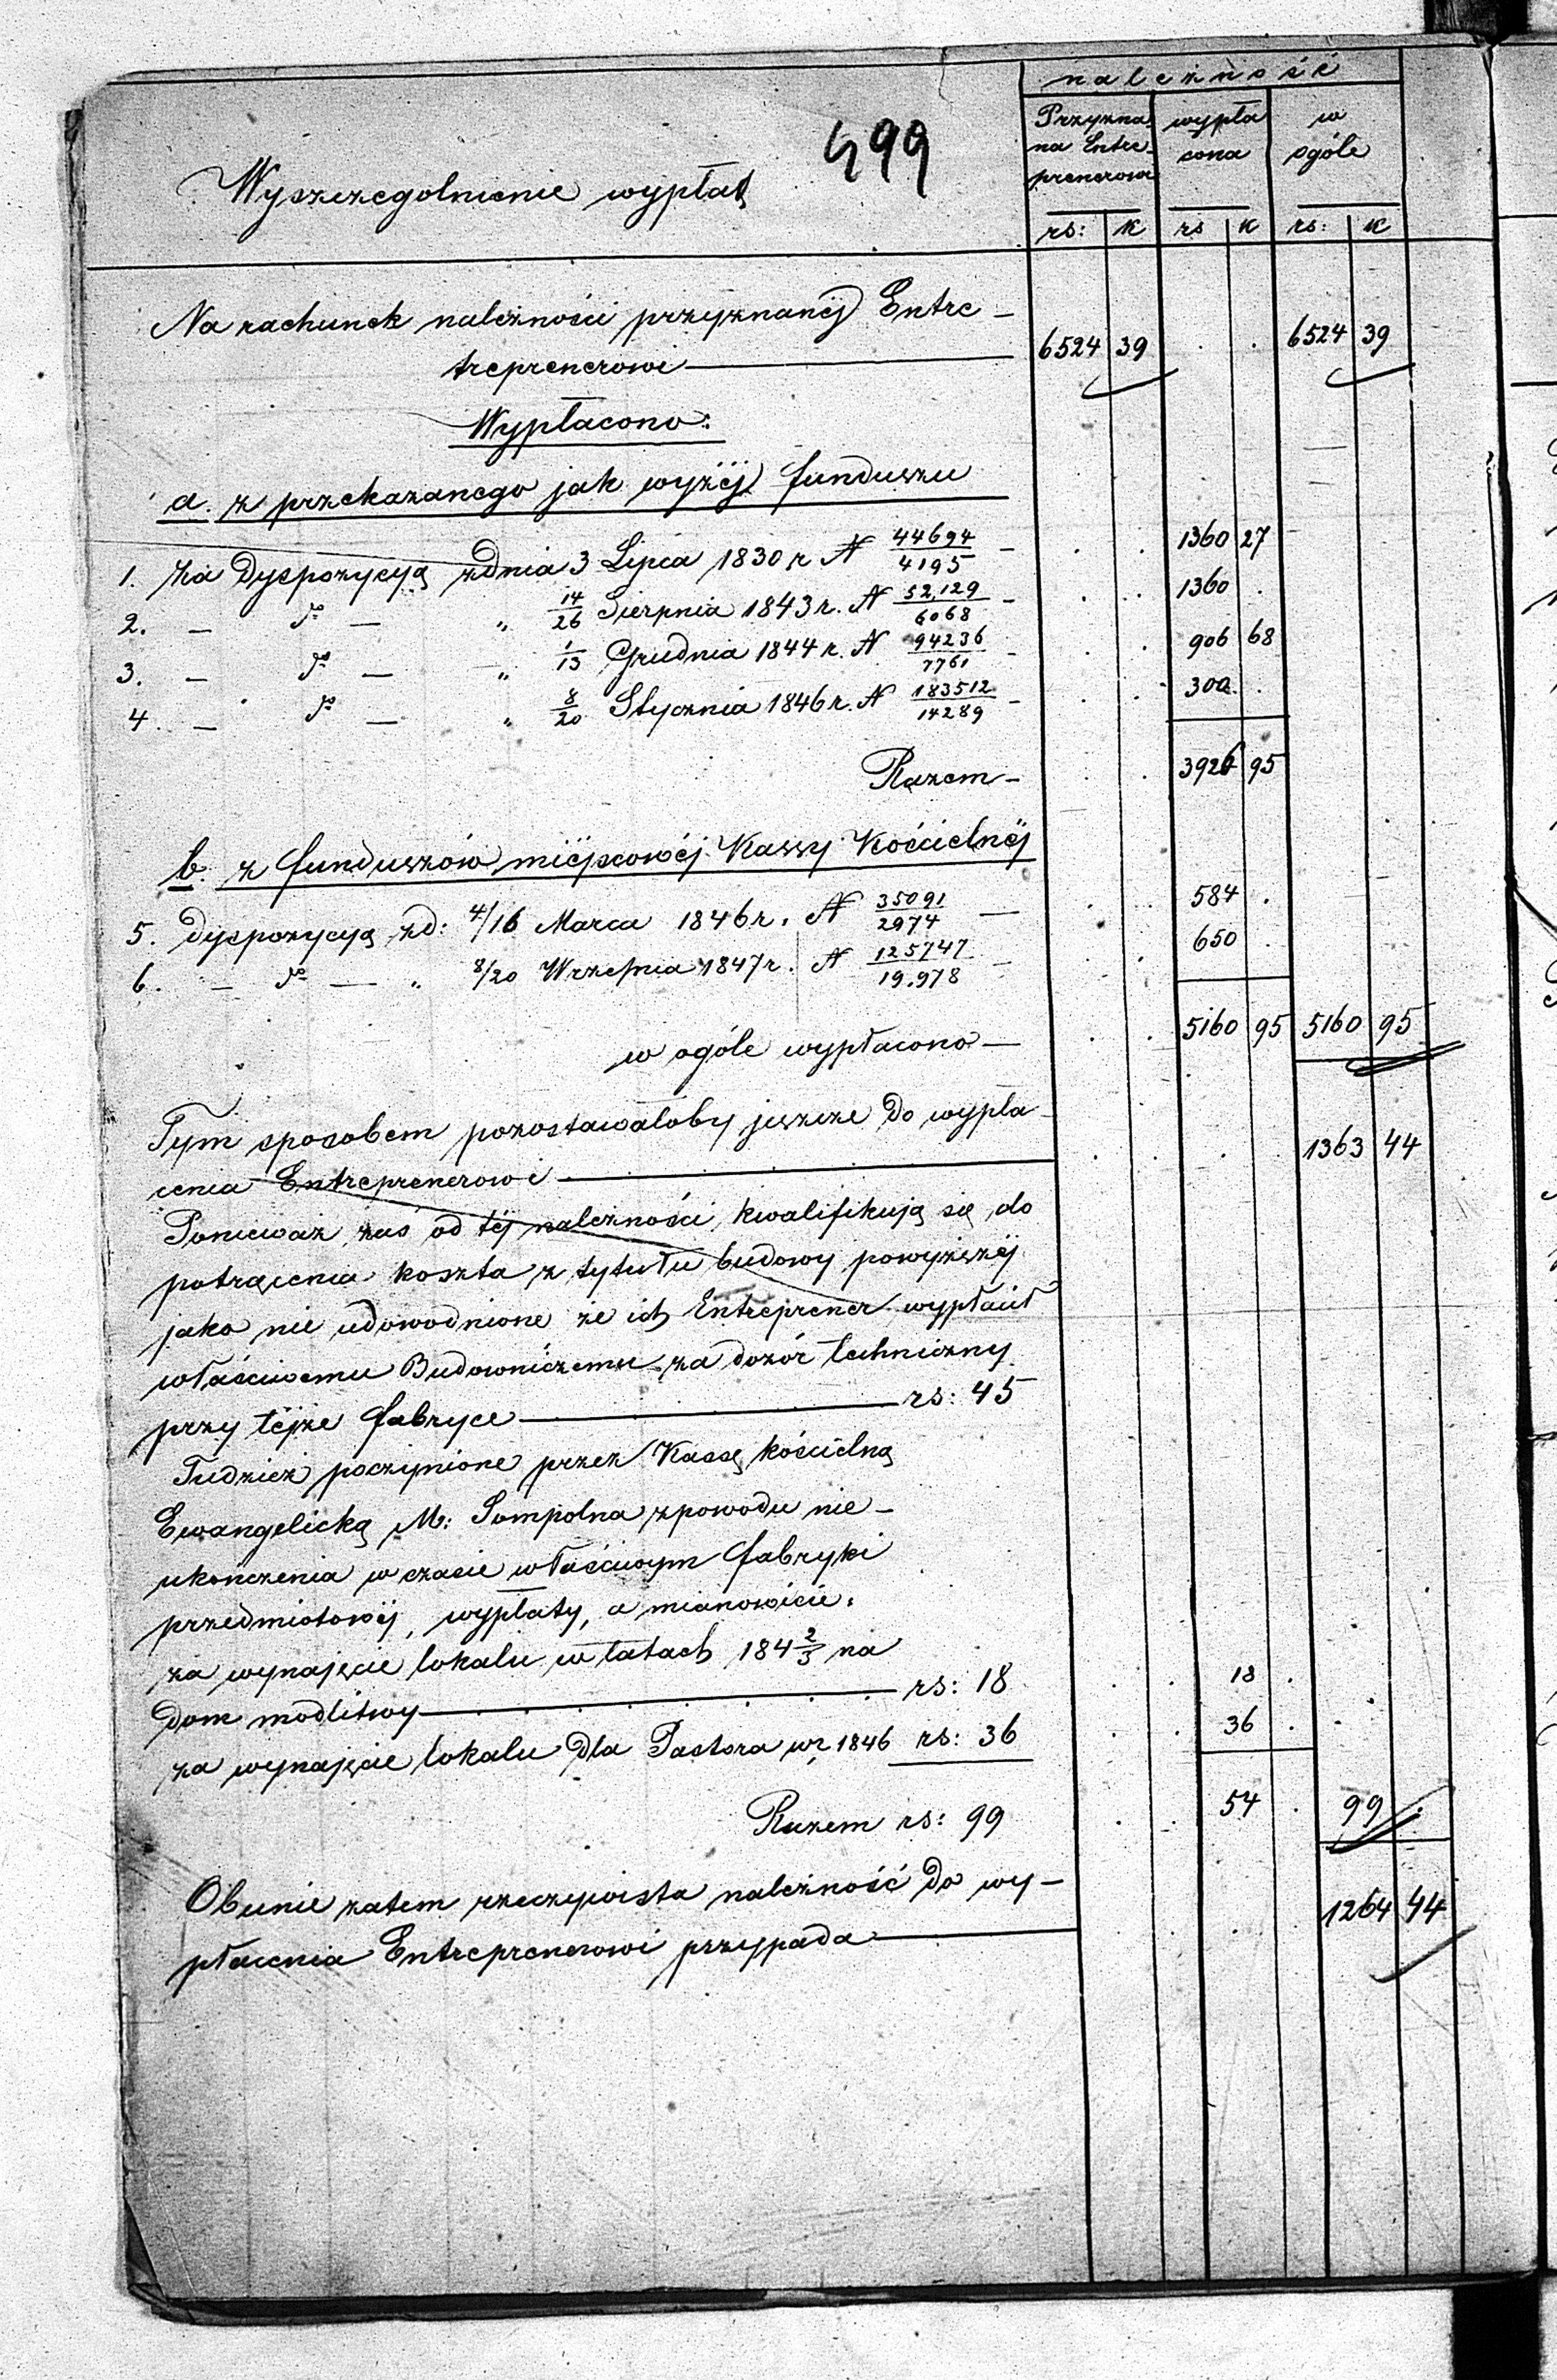 należność
499
Wyszczegolnienie wypłat
Przyzna-
na Entre-
prenerowi
wypła
cona
w
ogóle
rs: k rs k rs: k
Na rachunek należności przyznanéj Entre-
treprenerowi 6524 39 . . 6524 39
Wypłacono:
a. z przekazanego jak wyżéj funduszu
1. Za Dyspozycyą zdnia 3 Lipca 1830 r N 44694/4195 - . . 1360 27
2. — do — „ 14/26 Sierpnia 1843 r. N 52,129/6068 - . . 1360 .
3. — do — „ 1/13 Grudnia 1844 r. N 94236/7761 - . . 906 68
4. — do — „ 8/20 Stycznia 1846 r. N 183512/14289 - . . 300 .
Razem - . . 3926 95
b. z funduszów miéjscowéj Kassy Kościelnéj
5. Dyspozycyą zd: 4/16 Marca 1846 r. N 35091/2974 — . . 584 .
6. — do — „ 8/20 Września 1847 r. N 125747/19.978 — . . 650 .
w ogóle wypłacono — . . 5160 95 5160 95
Tym sposobem pozostawałoby jeszcze do wypła-
cenia Entreprenerowi . . . . 1363 44
Ponieważ zaś od téj należności, kwalifikują się do
potrącenia koszta z tytułu budowy powyższéj
jako nie udowodnione że ich Entreprener wypłacił
właściwemu Budowniczemu za dozór techniczny
przy téjże fabryce rs: 45
Tudzież poczynione przez Kassę kościelną
Ewangelicką M: Sompolna zpowodu nie-
ukończenia w czasie właściwym fabryki
przedmiotowéj, wypłaty, a mianowicie:
za wynajęcie lokalu w latach 184 2/3 na
dom modlitwy rs: 18 . . 18 .
za wynajęcie lokalu dla Pastora w r. 1846 rs: 36 . . 36 .
Razem rs: 99 . . 54 . 99 .
Obecnie zatem rzeczywista należność do wy-
płacenia Entreprenerowi przypada . . . . 1264 44